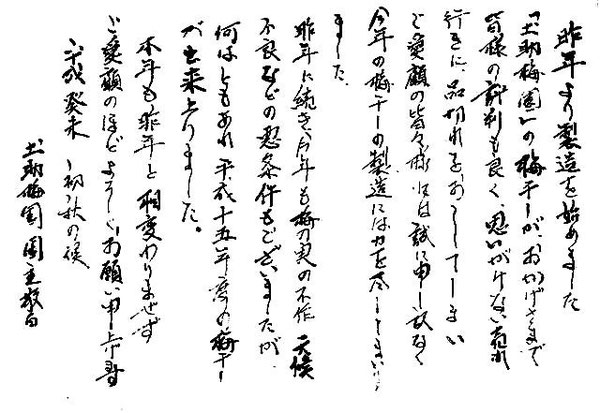 昨年より製造を始めました
「土の助梅園」の梅干が、おかげさまで
皆様の評判も良く、思いがけない売れ
行きに、品切れをおこしてしまい
ご愛顧の皆々様には誠に申し訳なく
今年の梅干の製造には力を尽してまいり
ました。
昨年に続き、今年も梅の実の不作 天候
不良などの悪条件もございましたが
何はともあれ平成十五年度の梅干
が出来上りました。
本年も昨年と相変わりませず
ご愛顧のほどよろしくお願い申し上げます
平成癸未 初秋の候
梅園 園主敬白